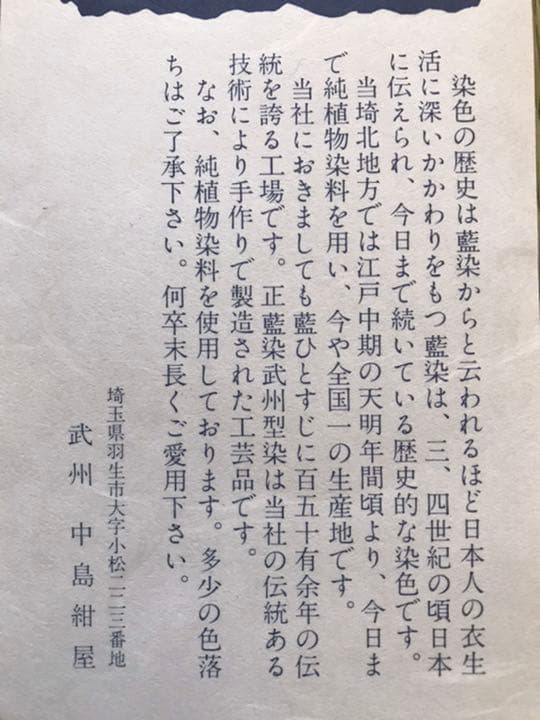 染色の歴史は藍染からと云われるほど日本人の衣生
活に深いかかわりをもつ藍染は、三、四世紀の頃日本
に伝えられ、今日まで続いている歴史的な染色です。
当埼北地方では江戸中期の天明年間頃より、今日ま
で純植物染料を用い、今や全国一の生産地です。
当社におきましても藍ひとすじに百五十有余年の伝
統を誇る工場です。正藍染武州型染は当社の伝統ある
技術により手作りで製造された工芸品です。
なお、純植物染料を使用しております。多少の色落
ちはご了承下さい。何卒末長くご愛用下さい。
埼玉県羽生市大字小松二二三番地
武州 中島紺屋